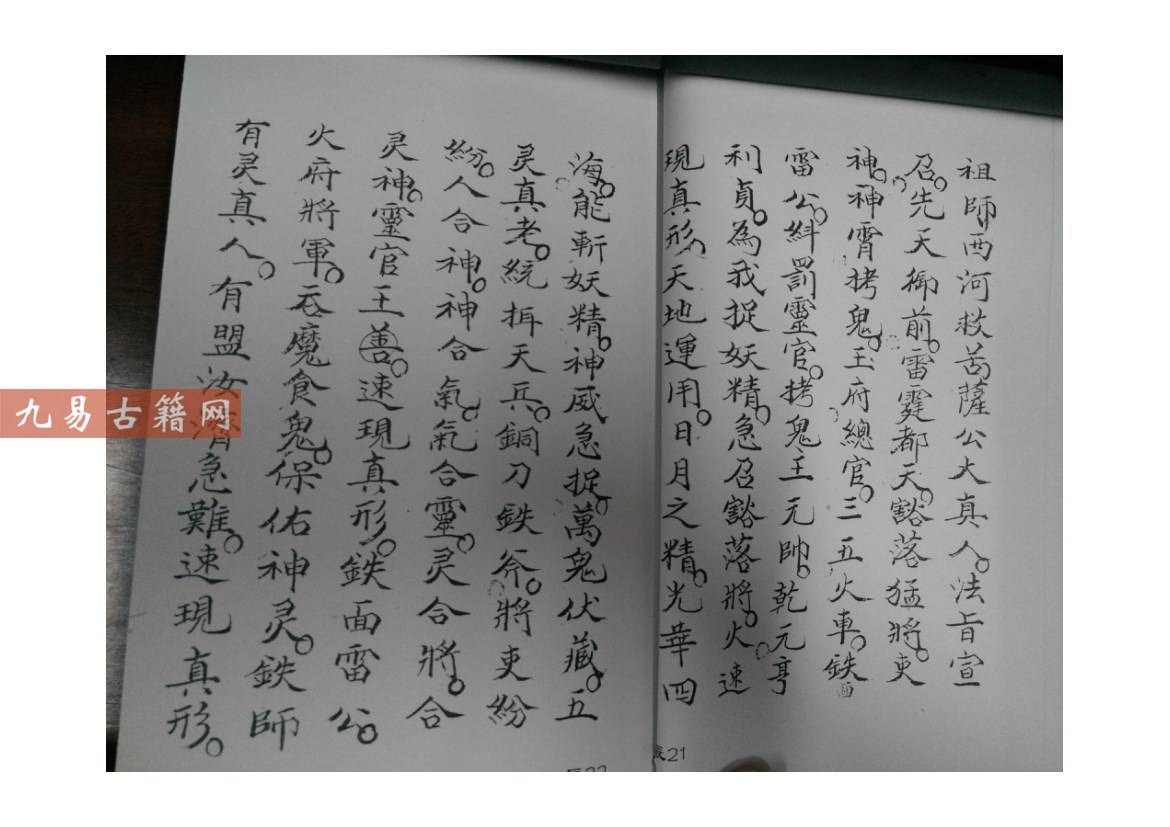 祖師西河救苦薩公大真人。法旨宣
召。先天御前。雷霆都天。豁落猛將。吏
神。神霄拷鬼。玉府總官。三五火車。鉄面
雷公。糾罰靈官。拷鬼王元帥。乾元亨
利貞。為我捉妖精。急召豁落將。火速
現真形。天地運用。日月之精。光華四
海。能斬妖精。神威急捉。萬鬼伏藏。五
灵真老。統揖天兵。銅刀鉄斧。將吏紛
紛。人合神。神合氣。氣合靈。灵合將。合
灵神。靈官王善。速現真形。鉄面雷公。
火府將軍。吞魔食鬼。保佑神灵。鉄師
有灵真人。有盟汝濟急難。速現真形。
21
22
九易古籍网